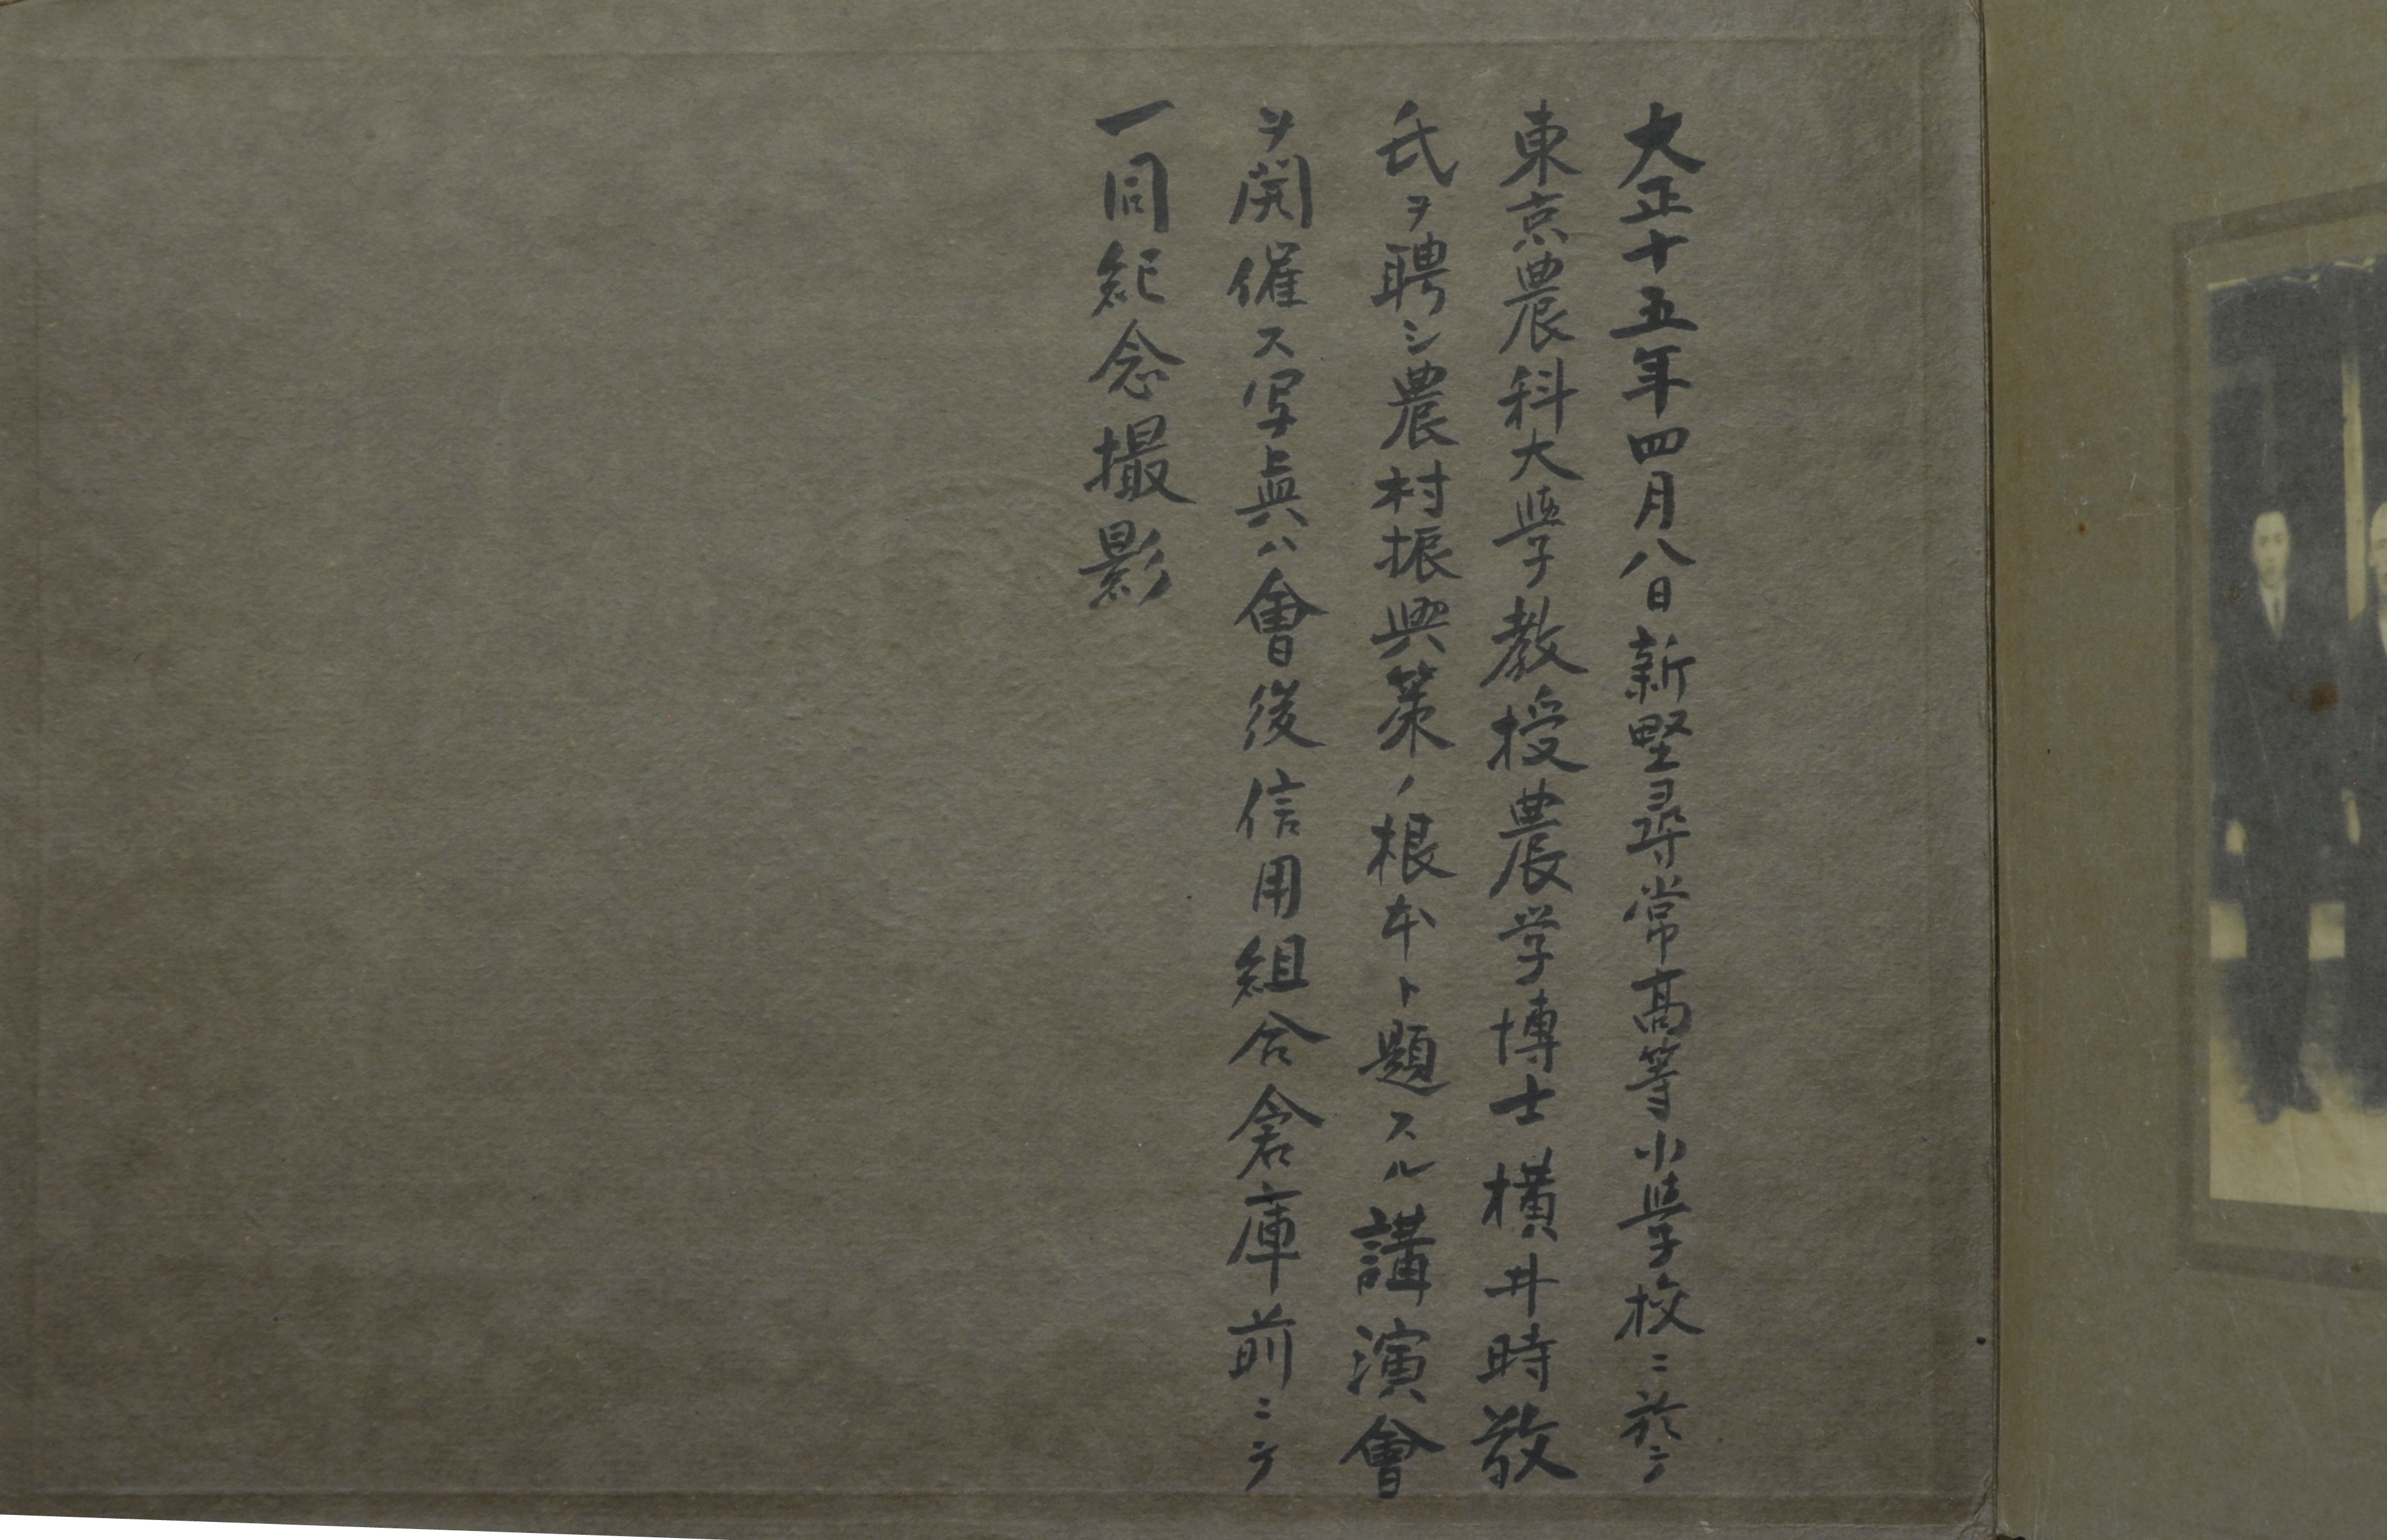 大正十五年四月八日新堅尋常高等小學校ニ於テ
東京農科大學教授農学博士横井時敬
氏ヲ聘シ農村振興策ノ根本ト題スル講演會
ヲ開催ス写眞ハ會後信用組合倉庫前ニテ
一同紀念撮影